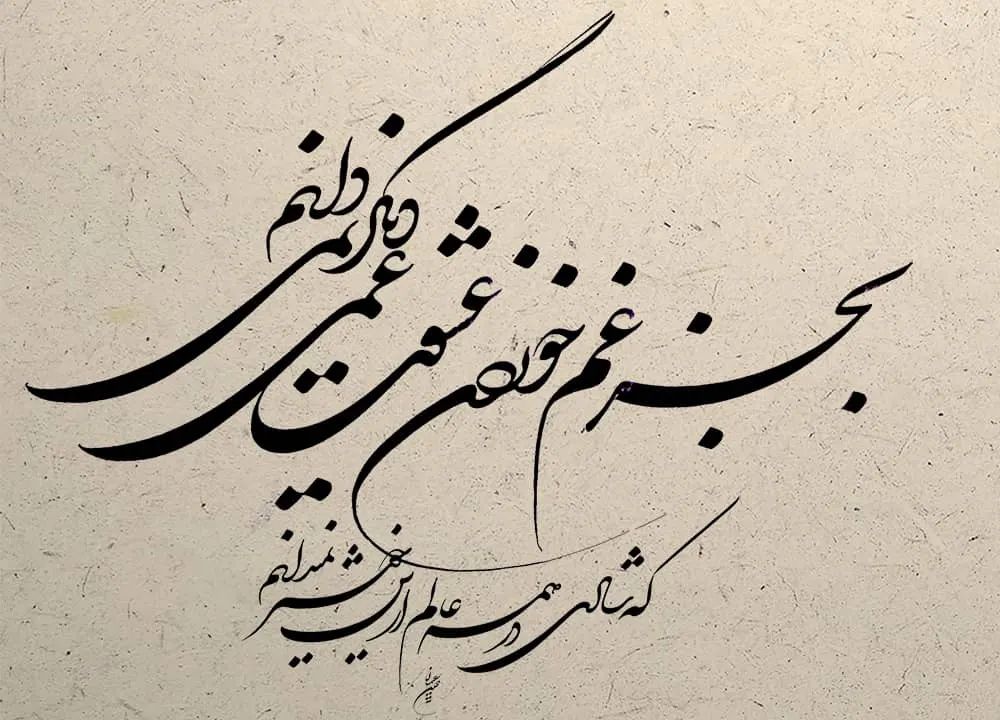 بجز غم خوردن عشقت غمی دیگر نمی دانم
که شادی در همه عالم ازین خوشتر نمیدانم